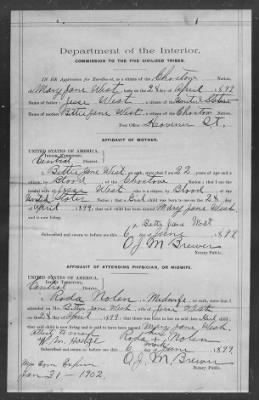 Department of the Interior.
COMMISSION TO THE FIVE CIVILIZED TRIBES.
IN RE Application for Enrollment, as a citizen of the Choctaw Nation,
of Mary Jane West born on the 28 day of April, 1899
Name of father: Jesse West a citizen of the United States
Name of mother: Bettie Jane West a citizen of the Choctaw Nation.
Post Office
AFFIDAVIT OF MOTHER.
UNITED STATES OF AMERICA,
INDIAN TERRITORY,
Central District.
I, Bettie Jane West, on oath state that I am 22 years of age and a
citizen, by Blood, of the Choctaw Nation; that I am the
lawful wife of Jesse West, who is a citizen, by
United States; that a Girl child was born to me on 28 day
of April 1899; that said child has been named Mary Jane West,
and is now living.
Betty Jane West
Subscribed and sworn to before me this 6 day of June, 1899
O.J.M. Brewer
Notary Public.
AFFIDAVIT OF ATTENDING PHYSICIAN, OR MIDWIFE.
UNITED STATES OF AMERICA,
INDIAN TERRITORY,
Central District.
I, Roda Nolen, a Midwife, on oath, state that I
attended on Mrs. Betty Jane West, wife of Jesse West
on the 28 day of April, 1899; that there was born to her on said date a Girl
child; that said child is now living and is said to have been named Mary Jane West.
Roda Nolen
mark
Subscribed and sworn to before me this 6 day of June, 1899.
O.J.M. Brewer
Notary Public.
Jan 31 - 1902